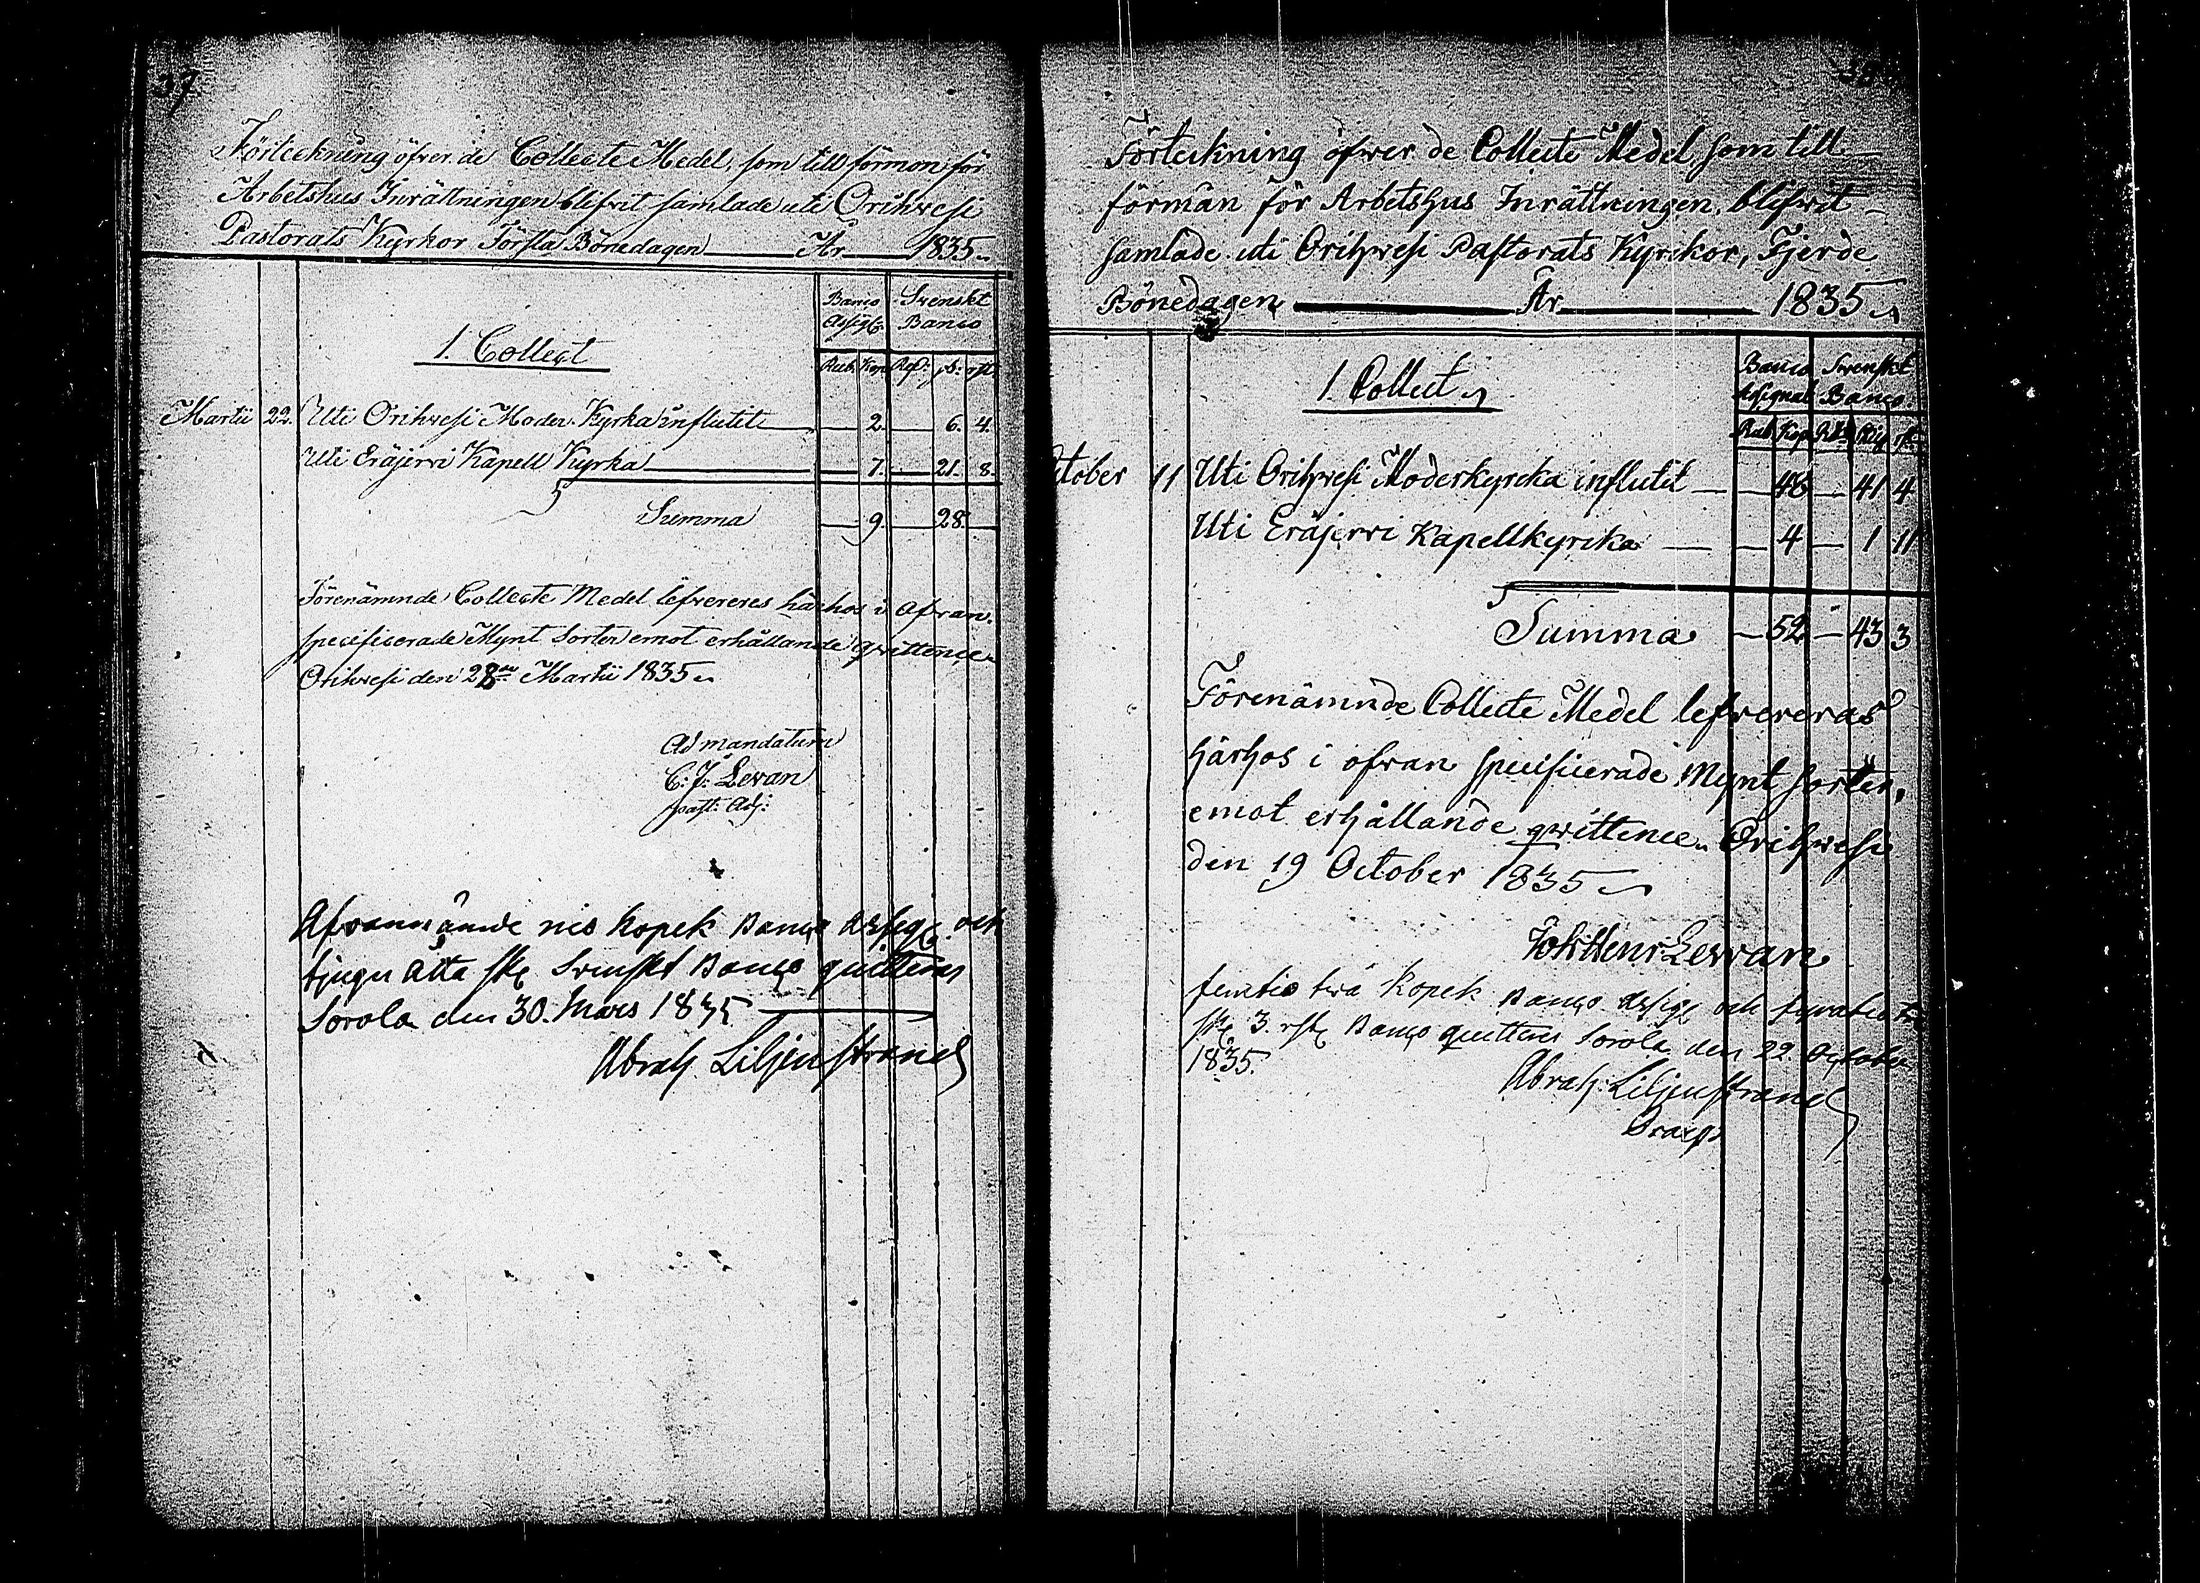 37
Förteckning öfver de Collecte Medel, som till förmon för
Arbetshus Inrättningen blifvit samlade uti Orihvesi
Pastorats Kyrkor Första Bönedagen — År — 1835.
Banco Assign. Svenskt Banco
1. Collect
Rub. Kop. Rd. s. rst.
Martii 22. Uti Orihvesi Moder Kyrka influtit — 2. — 6. 4.
Uti Eräjervi Kapell Kyrka — 7. — 21. 8.
Summa — 9. — 28. —
Förenämnde Collecte Medel lefvereres härhos i ofvan
specificerade Mynt Sorter emot erhållande qvittence.
Orihvesi den 28de Martii 1835.
Ad mandatum
C. J. Levan
past. Adj:
Ofvannämde nio kopek Banco Assign. och
tjugu åtta sk. Svenskt Banco quitteras
Sorola den 30. Mars 1835
Abrah. Liljenstrand
Förteckning öfwer de Collecte Medel, som till
förmån för Arbetshus Inrättningen, blifwit
samlade uti Orihwesi Pastorats Kyrckor, Fjerde
Bönedagen — År — 1835
Banco Assignat Swenskt Banco
1. Collect
Rub. Kop. Rd. sk. rst.
October 11 Uti Orihwesi Moderkyrcka influtit — 48 — 41 4
Uti Eräjerwi Kapellkyrcka — 4 — 1 11
Summa — 52 — 43 3
Förenämnde Collecte Medel lefwereras
härhos i ofvan specificerade Mynt sorter,
emot erhållande qwittence. Orihwesi
den 19 October 1835
Joh Henr Lewan
femtio två kopek Banco Assig. och fyratio tre
sk. 3 rst. Banco quitteras Sorola den 22 October
1835.
Abrah. Liljenstrand